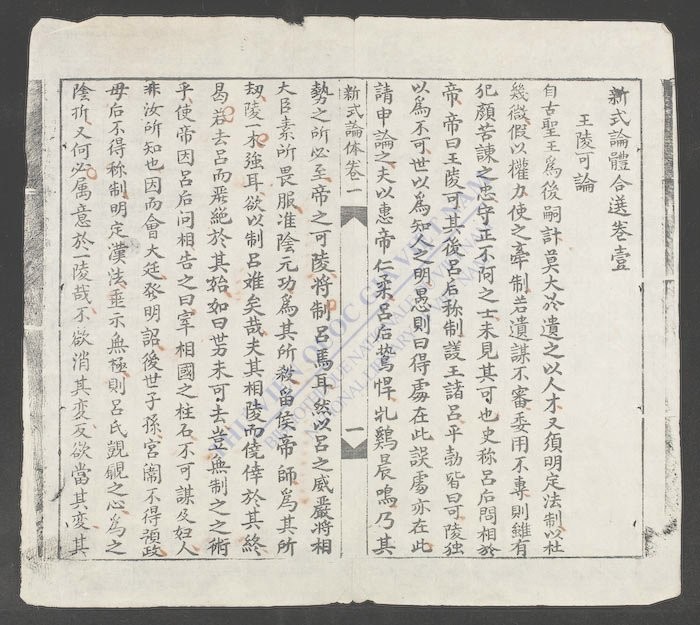 新式論體合選卷壹
王陵可論
自古聖王爲後嗣計莫大於遺之以人才又須明定法制以杜
幾微假以權力使之牽制若遺謀不審委用不專則雖有
犯顏苦諫之忠守正不阿之士未見其可也史称呂后問相於
帝帝曰王陵可其後呂后称制議王諸呂平勃皆曰可陵独
以爲不可世以爲知人之明愚則曰得處在此誤處亦在此
請申論之夫以惠帝仁柔呂后鷙悍牝鷄晨鳴乃其
新式論体卷一
一
勢之所必至帝之可陵將制呂焉耳然以呂之威嚴將相
大臣素所畏服淮陰元功爲其所殺留侯帝師爲其所
刼陵一木強耳欲以制呂难矣哉夫其相陵而僥倖於其終
曷若去呂而爲絕於其始如曰世方未可去豈無制之之術
乎使帝因呂后問相告之曰宰相國之柱石不可謀及妇人
非汝所知也因而會大廷發明詔後世子孫宮闈不得預政
毋后不得称制明定漢法垂示無極則呂氏覬覦之心爲之
陰折又何必屬意於一陵哉不欲消其変反欲當其変其
THƯ VIỆN QUỐC GIA VIỆT NAM
BIBLIOTHÈQUE NATIONALE DU VIETNAM
NATIONAL LIBRARY OF VIETNAM